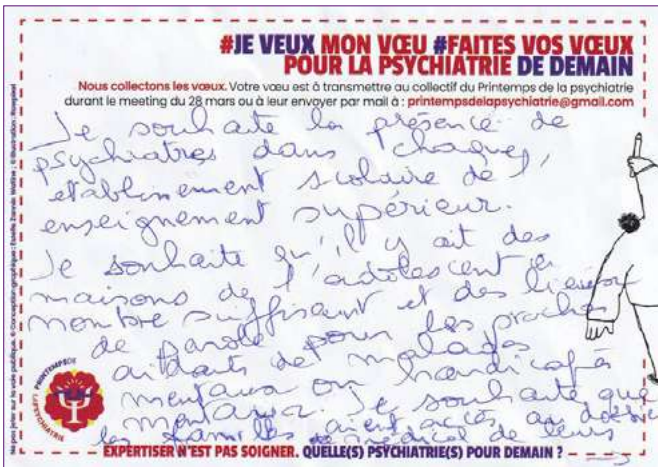 #JE VEUX MON VŒU #FAITES VOS VŒUX
POUR LA PSYCHIATRIE DE DEMAIN
Nous collectons les vœux. Votre vœu est à transmettre au collectif du Printemps de la psychiatrie
durant le meeting du 28 mars ou à leur envoyer par mail à : printempsdelapsychiatrie@gmail.com
Je souhaite la présence de
psychiatres dans chaque
établissement scolaire de l'
enseignement supérieur.
Je souhaite qu'il y ait des
maisons de l'adolescent en
nombre suffisant et des lieux
de parole pour les proches
aidants de malades
mentaux ou handicapés
mentaux. Je souhaite que
les familles aient accès au dossier
médical de leurs
EXPERTISER N'EST PAS SOIGNER. QUELLE(S) PSYCHIATRIE(S) POUR DEMAIN ?
PRINTEMPS DE
LA PSYCHIATRIE
Ne pas jeter sur la voie publique. © Conception graphique :